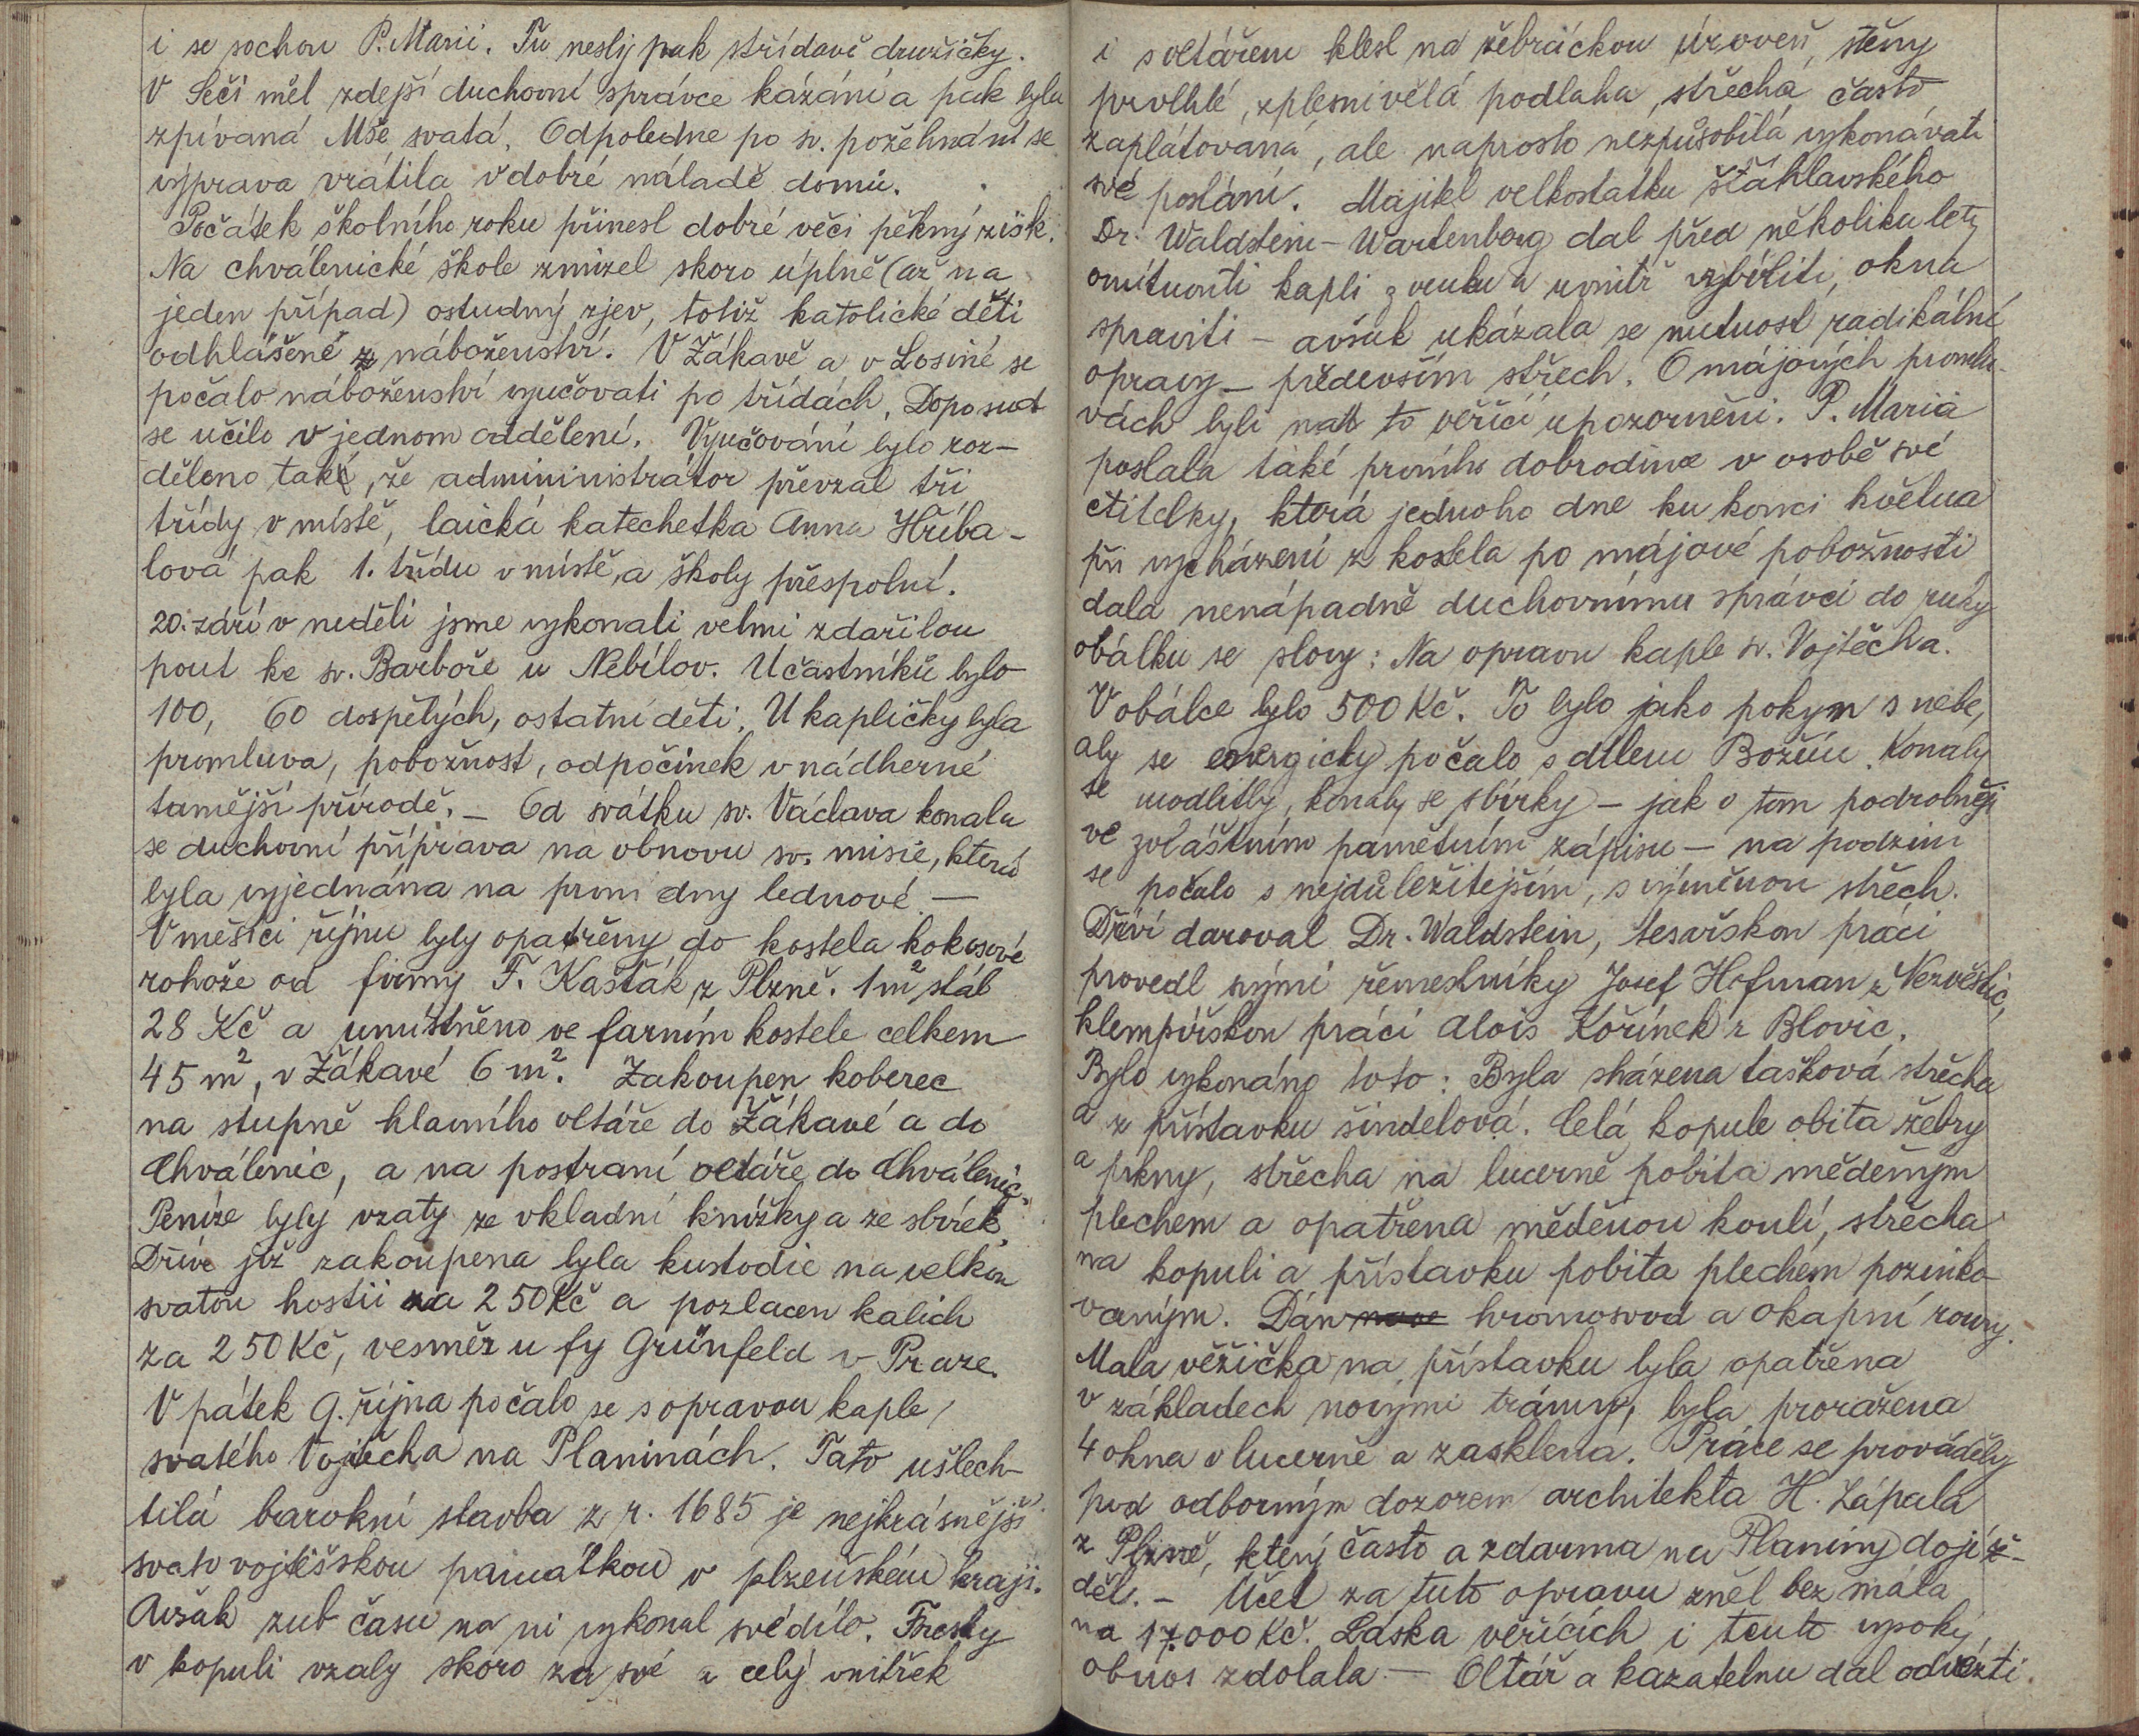 i se sochou P. Marii. Tu nesly pak střídavě družičky.
V Seči měl zdejší duchovní správce kázání a pak byla
zpívaná Mše svatá. Odpoledne po sv. požehnání se
výprava vrátila v dobré náladě domů.
Počátek školního roku přinesl dobré věci pěkný zisk.
Na chválenické škole zmizel skoro úplně (až na
jeden případ) ostudný zjev, totiž katolické děti
odhlášené z náboženství. V Žákavě a v Losiné se
počalo náboženství vyučovati po třídách. Doposud
se učilo v jednom oddělení. Vyučování bylo roz-
děleno tak, že admininistrátor převzal tři
třídy v místě, laická katechetka Anna Hříba-
lová pak 1. třídu v místě, a školy přespolní.
20. září v neděli jsme vykonali velmi zdařilou
pout ke sv. Barboře u Nebílov. Učastníků bylo
100, 60 dospělých, ostatní děti. U kapličky byla
promluva, pobožnost, odpočinek v nádherné
tamější přírodě. – Od svátku sv. Václava konala
se duchovní příprava na obnovu sv. misie, která
byla vyjednána na první dny lednové –
V měsíci říjnu byly opatřeny do kostela kokosové
rohože od firmy F. Kašťák z Plzně. 1 m² stál
28 Kč a umístněno ve farním kostele celkem
45 m², v Žákavé 6 m². Zakoupen koberec
na stupně hlavního oltáře do Žákavé a do
Chválenic, a na postraní oltáře do Chválenic.
Peníze byly vzaty ze vkladní knížky a ze sbírek.
Dříve již zakoupena byla kustodie na velkou
svatou hostii za 250 Kč a pozlacen kalich
za 250 Kč, vesměs u fy Grünfeld v Praze.
V pátek 9. října počalo se s opravou kaple
svatého Vojtěcha na Planinách. Tato ušlech-
tilá barokní stavba z r. 1685 je nejkrásnější
svatovojtěšskou památkou v plzeňském kraji.
Avšak zub času na ni vykonal své dílo. Fresky
v kopuli vzaly skoro za své a celý vnitřek
i s oltářem klesl na žebráckou úroveň, stěny
provlhlé, zplesnivělá podlaha, střecha často
zaplátovaná, ale naprosto nezpůsobilá vykonávati
své poslání. Majitel velkostatku šťáhlavského
Dr. Waldstein-Wartenberg dal před několika lety
omítnouti kapli z venku a uvnitř vybíliti, okna
spraviti – avšak ukázala se nutnost radikální
opravy – především střech. O májových promlu-
vách byli na to věřící upozorněni. P. Maria
poslala také prvního dobrodince v osobě své
ctitelky, která jednoho dne ku konci května
při vycházení z kostela po májové pobožnosti
dala nenápadně duchovnímu správci do ruky
obálku se slovy: Na opravu kaple sv. Vojtěcha.
V obálce bylo 500 Kč. To bylo jako pokyn s nebe,
aby se energicky počalo s dílem Božím. Konaly
se modlitby, konaly se sbírky – jak o tom podrobněji
ve zvláštním pamětním zápisu – na podzim
se počalo s nejdůležitejším, s výměnou střech.
Dříví daroval Dr. Waldstein, tesařskou práci
provedl svými řemeslníky Josef Hofman z Nezvěstic,
klempířskou práci Alois Kořínek z Blovic.
Bylo vykonáno toto: Byla sházena tašková střecha
a z přístavku šindelová. Celá kopule obita žebry
a prkny, střecha na lucerně pobita měděným
plechem a opatřena měděnou koulí, střecha
na kopuli a přístavku pobita plechem pozinko-
vaným. Dán hromosvod a okapní roury.
Mala věžička na přístavku byla opatřena
v základech novými trámy, byla proražena
4 okna v lucerně a zasklena. Práce se prováděly
pod odborným dozorem architekta H. Zápala
z Plzně, který často a zdarma na Planiny dojíž-
děl. – Účet za tuto opravu zněl bez mála
na 17.000 Kč. Láska věřících i tento vysoký
obnos zdolala. – Oltář a kazatelnu dal odvézti